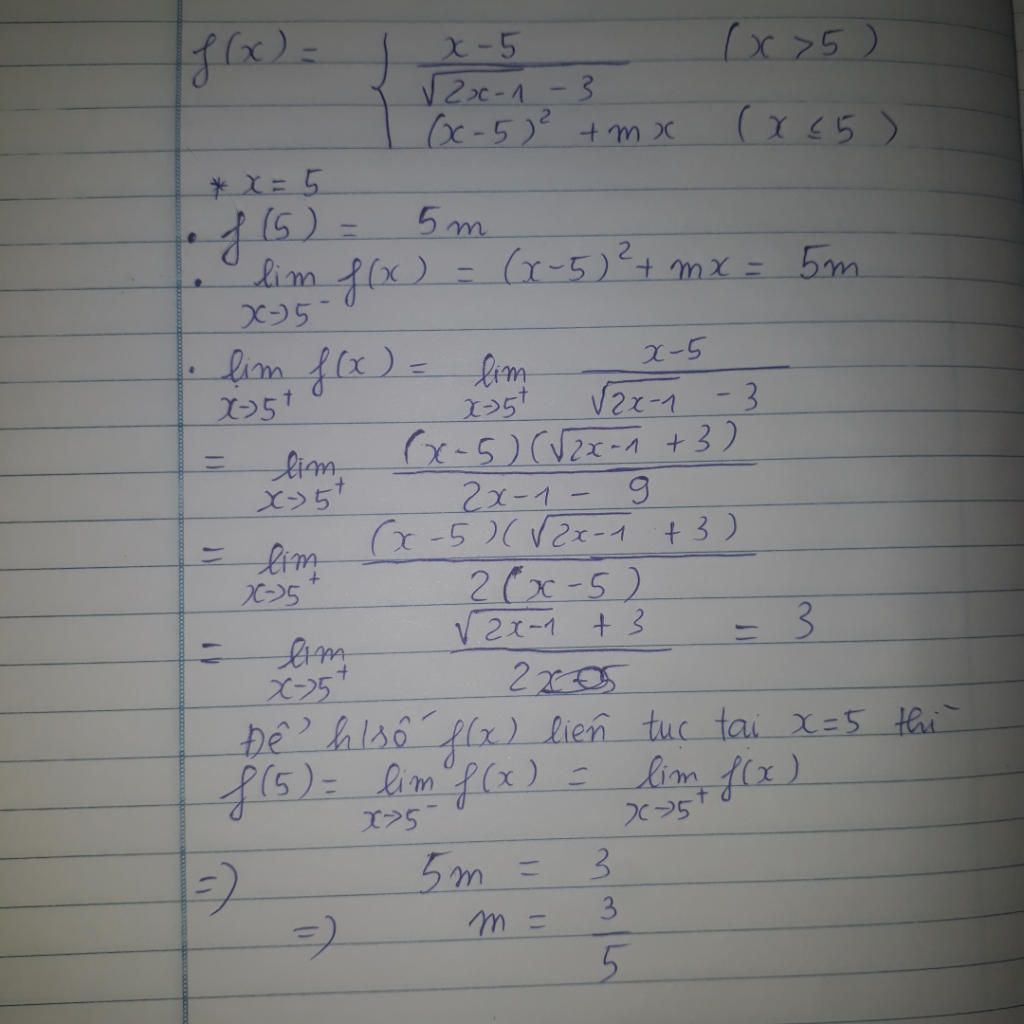 f(x) = { (x-5)/(√(2x-1) - 3) (x > 5)
(x-5)² + mx (x ≤ 5)
* x = 5
• f(5) = 5m
• lim x→5⁻ f(x) = (x-5)² + mx = 5m
• lim x→5⁺ f(x) = lim x→5⁺ (x-5)/(√(2x-1) - 3)
= lim x→5⁺ (x-5)(√(2x-1) + 3)/(2x-1 - 9)
= lim x→5⁺ (x-5)(√(2x-1) + 3)/(2(x-5))
= lim x→5⁺ (√(2x-1) + 3)/2 = 3
Để h/số f(x) liên tục tại x=5 thì
f(5) = lim x→5⁻ f(x) = lim x→5⁺ f(x)
=> 5m = 3
=> m = 3/5